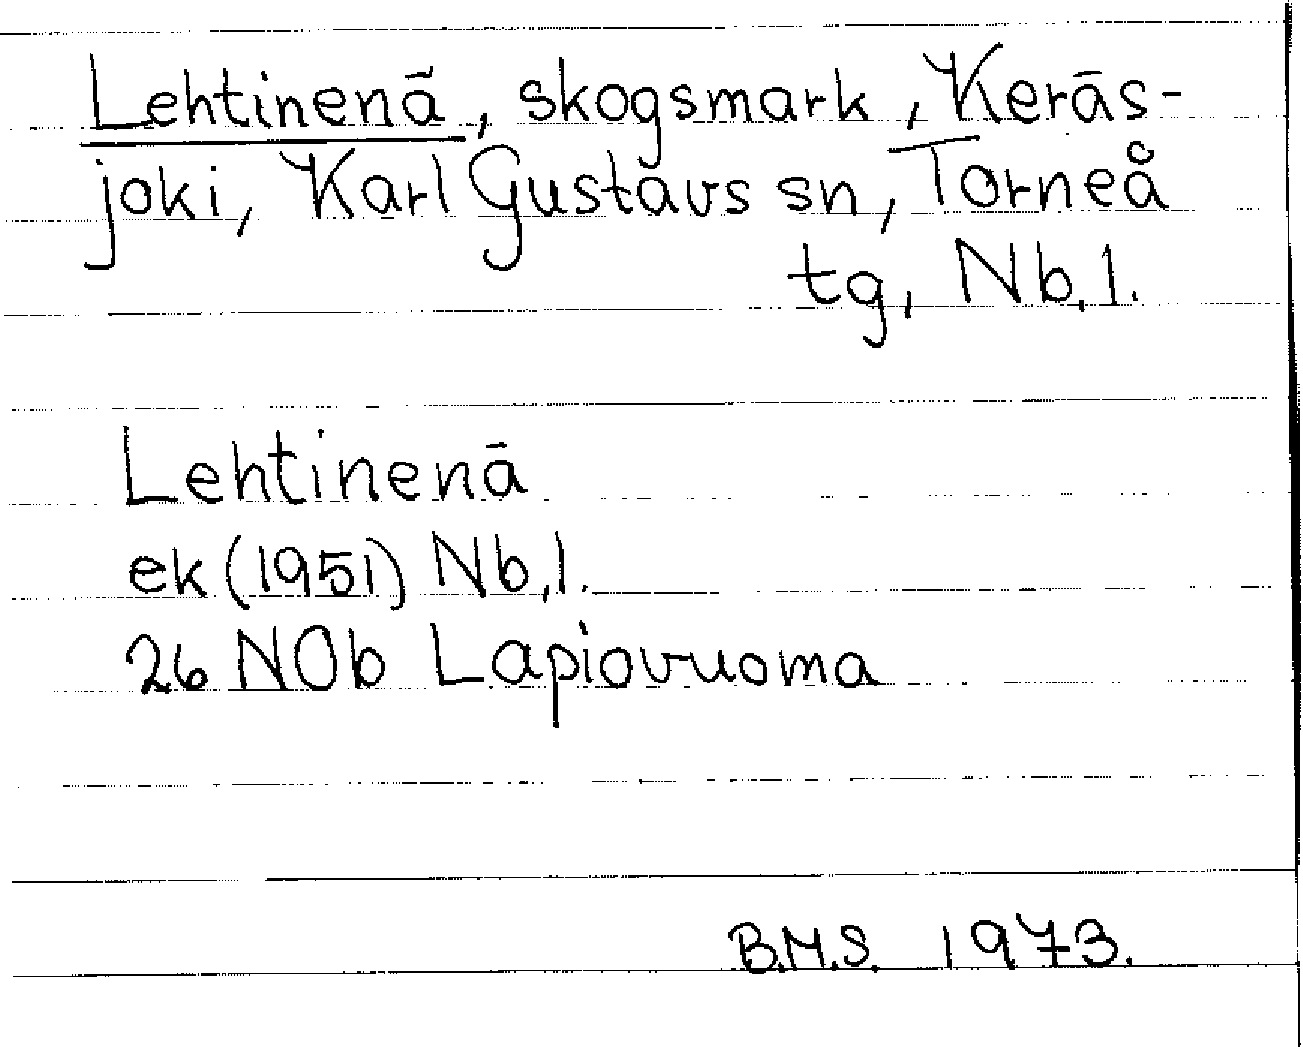 Lehtinenä, skogsmark, Keräs-
joki, Karl Gustavs sn, Torneå
tg, Nb,l.
Lehtinenä
ek (1951) Nb,l.
26 NOb Lapiovuoma
B.M.S. 1973.